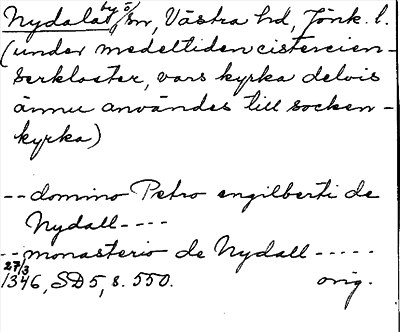 Nydala by o sn, Västra hd, Jönk. l.
(under medeltiden cistercien-
serkloster, vars kyrka delvis
ännu användes till socken-
kyrka)
-- domino Petro engilberti de
Nydall ----
-- monasterio de Nydall -----
27/3 1346, SD 5, s. 550. orig.